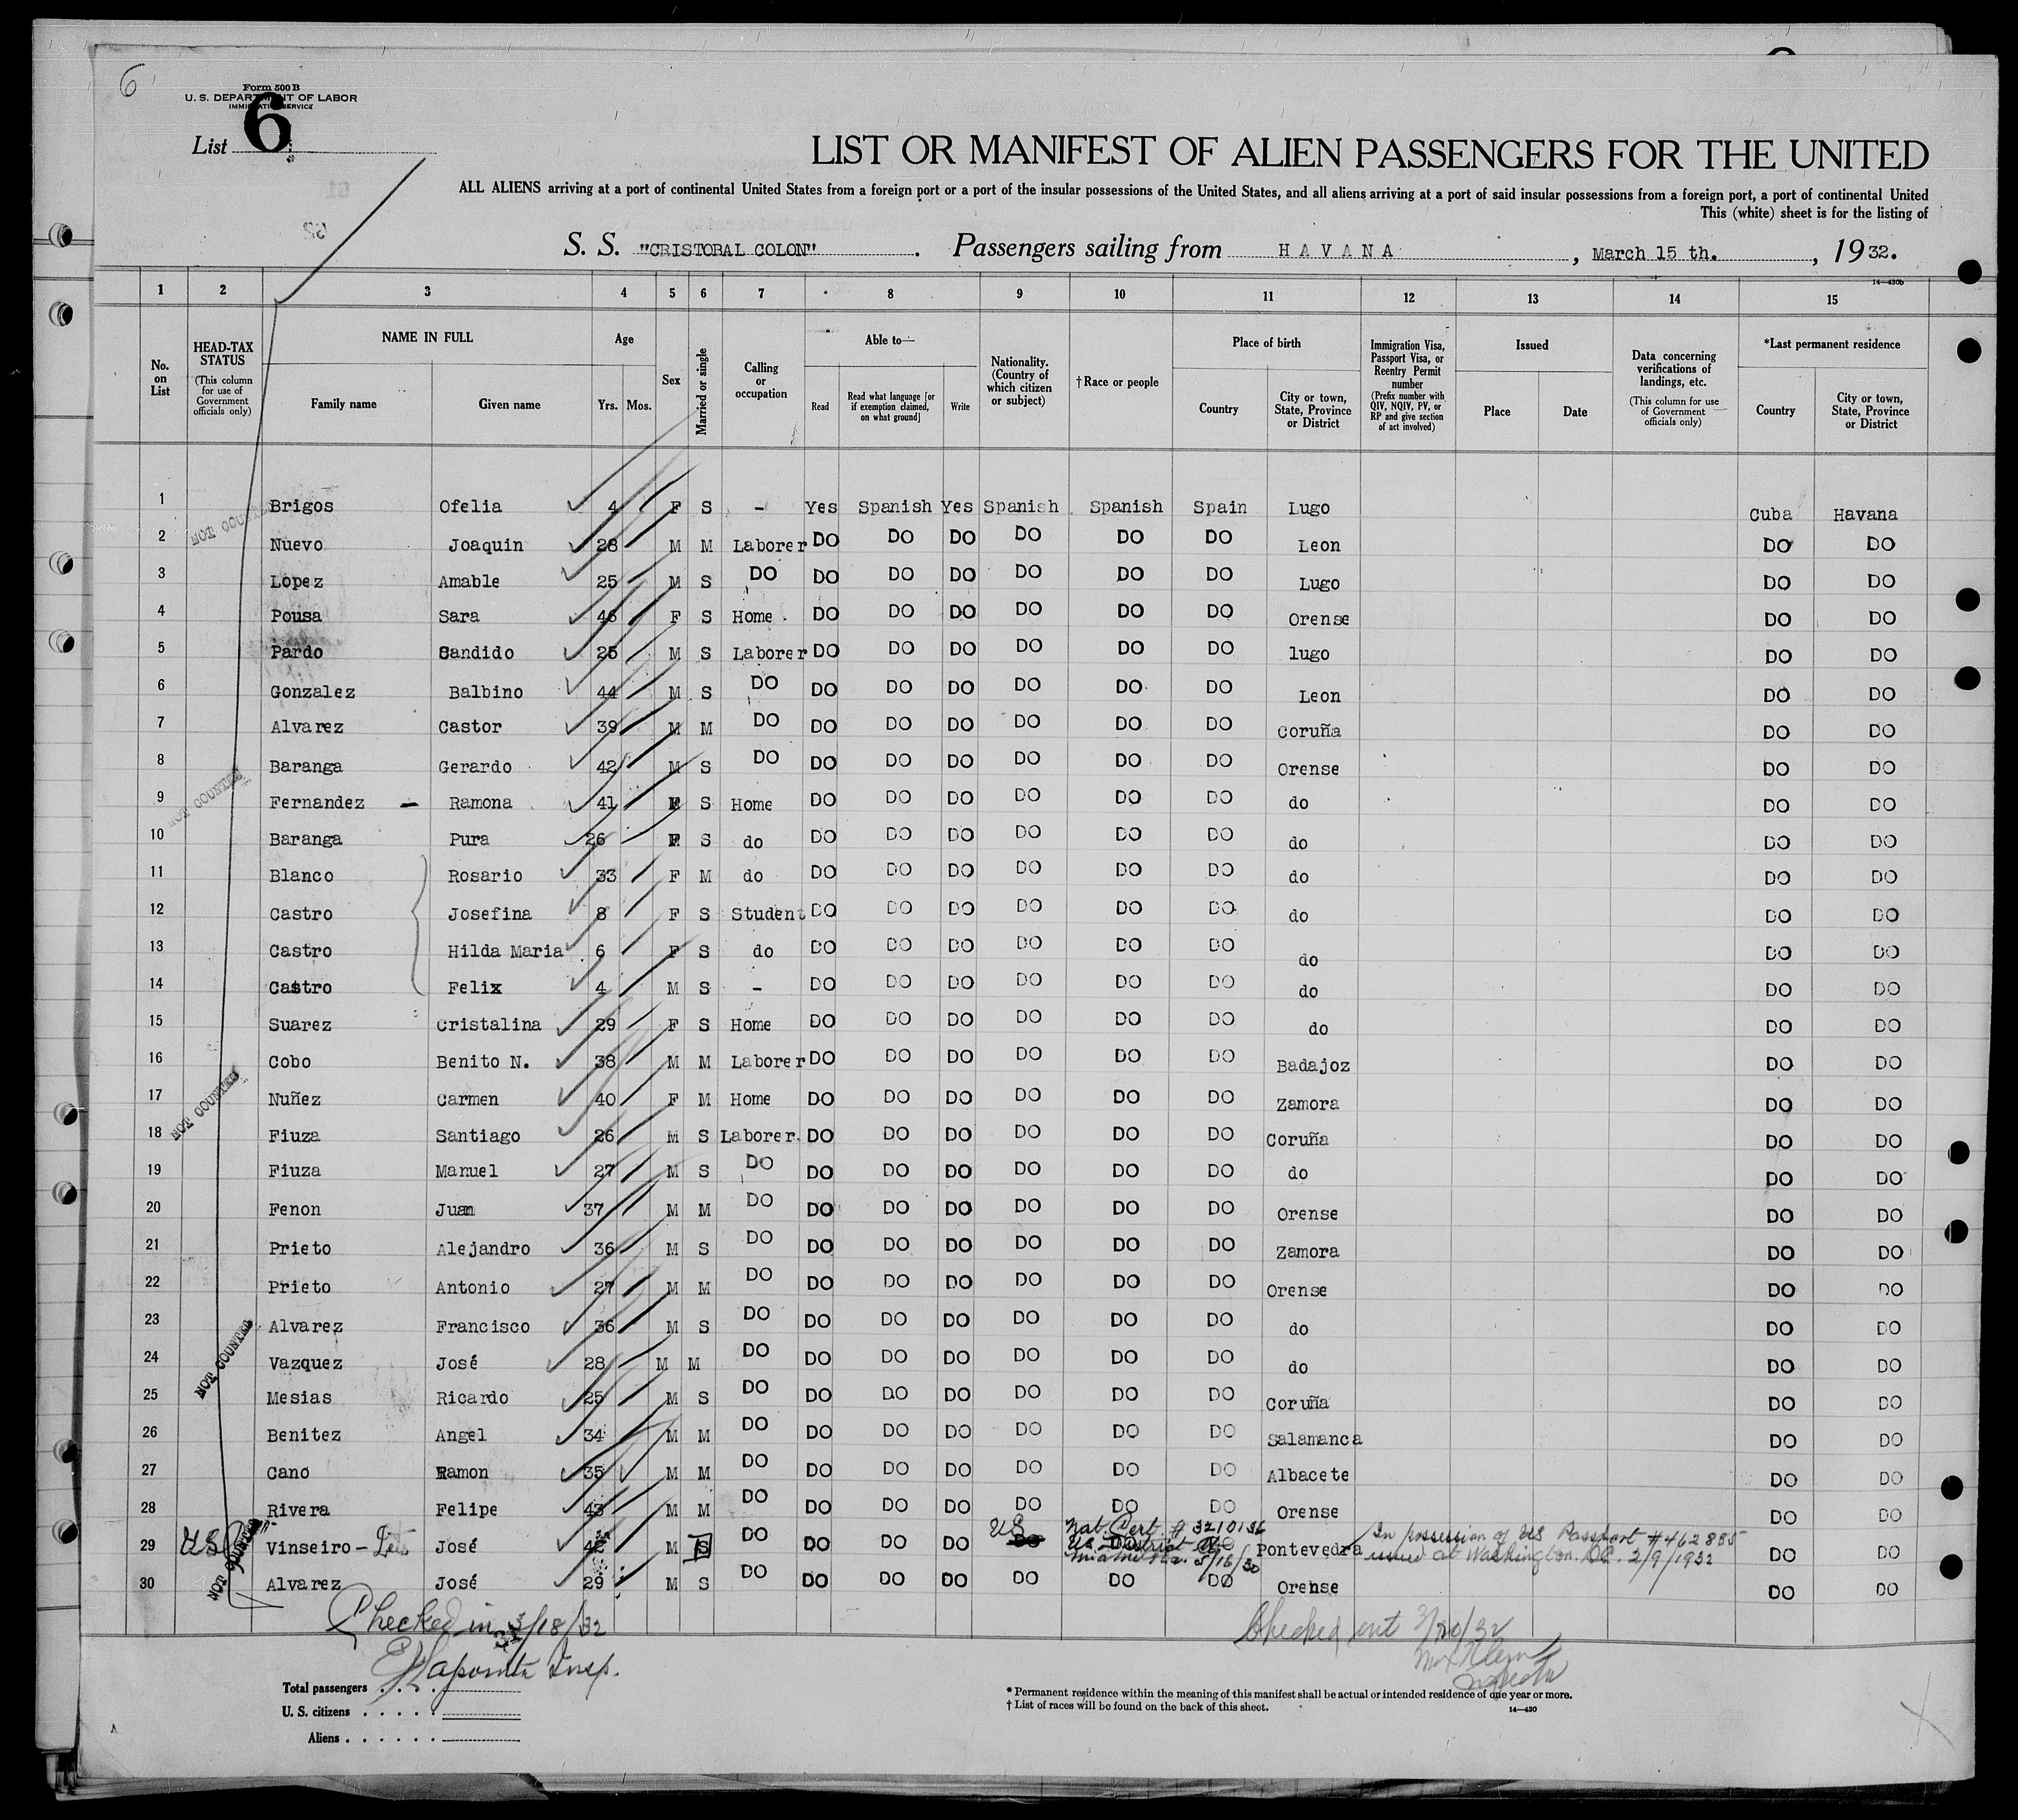 6
Form 500 B
U. S. DEPARTMENT OF LABOR
IMMIGRATION SERVICE
List 6
LIST OR MANIFEST OF ALIEN PASSENGERS FOR THE UNITED
ALL ALIENS arriving at a port of continental United States from a foreign port or a port of the insular possessions of the United States, and all aliens arriving at a port of said insular possessions from a foreign port, a port of continental United
This (white) sheet is for the listing of
S. S. "CRISTOBAL COLON". Passengers sailing from HAVANA, March 15 th., 1932.
14—430b
1 2 3 4 5 6 7 8 9 10 11 12 13 14 15
No. on List
HEAD-TAX STATUS
(This column for use of Government officials only)
NAME IN FULL
Family name Given name
Age
Yrs. Mos.
Sex
Married or single
Calling or occupation
Able to—
Read
Read what language [or if exemption claimed, on what ground]
Write
Nationality. (Country of which citizen or subject)
† Race or people
Place of birth
Country
City or town, State, Province or District
Immigration Visa, Passport Visa, or Reentry Permit number
(Prefix number with QIV, NQIV, PV, or RP and give section of act involved)
Issued
Place Date
Data concerning verifications of landings, etc.
(This column for use of Government officials only)
*Last permanent residence
Country
City or town, State, Province or District
1 Brigos Ofelia 4 F S - Yes Spanish Yes Spanish Spanish Spain Lugo Cuba Havana
NOT COUNTED
2 Nuevo Joaquin 28 M M Laborer DO DO DO DO DO DO Leon DO DO
3 Lopez Amable 25 M S DO DO DO DO DO DO DO Lugo DO DO
4 Pousa Sara 46 F S Home DO DO DO DO DO DO Orense DO DO
5 Pardo Candido 25 M S Laborer DO DO DO DO DO DO lugo DO DO
6 Gonzalez Balbino 44 M S DO DO DO DO DO DO DO Leon DO DO
7 Alvarez Castor 39 M M DO DO DO DO DO DO DO Coruña DO DO
8 Baranga Gerardo 42 M S DO DO DO DO DO DO DO Orense DO DO
NOT COUNTED
9 Fernandez - Ramona 41 F S Home DO DO DO DO DO DO do DO DO
10 Baranga Pura 26 F S do DO DO DO DO DO DO do DO DO
11 Blanco Rosario 33 F M do DO DO DO DO DO DO do DO DO
12 Castro Josefina 8 F S Student DO DO DO DO DO DO do DO DO
13 Castro Hilda Maria 6 F S do DO DO DO DO DO DO do DO DO
14 Castro Felix 4 M S - DO DO DO DO DO DO do DO DO
15 Suarez Cristalina 29 F S Home DO DO DO DO DO DO do DO DO
16 Cobo Benito N. 38 M M Laborer DO DO DO DO DO DO Badajoz DO DO
NOT COUNTED
17 Nuñez Carmen 40 F M Home DO DO DO DO DO DO Zamora DO DO
18 Fiuza Santiago 26 M S Laborer. DO DO DO DO DO DO Coruña DO DO
19 Fiuza Manuel 27 M S DO DO DO DO DO DO DO do DO DO
20 Fenon Juan 37 M M DO DO DO DO DO DO DO Orense DO DO
21 Prieto Alejandro 36 M S DO DO DO DO DO DO DO Zamora DO DO
22 Prieto Antonio 27 M M DO DO DO DO DO DO DO Orense DO DO
23 Alvarez Francisco 36 M S DO DO DO DO DO DO DO do DO DO
NOT COUNTED
24 Vazquez José 28 M M DO DO DO DO DO DO DO do DO DO
25 Mesias Ricardo 25 M S DO DO DO DO DO DO DO Coruña DO DO
26 Benitez Angel 34 M M DO DO DO DO DO DO DO Salamanca DO DO
27 Cano Ramon 35 M M DO DO DO DO DO DO DO Albacete DO DO
28 Rivera Felipe 43 M M DO DO DO DO DO DO DO Orense DO DO
US Nat. Cert. # 3210136 In possession of US Passport #462885
29 Vinseiro - José 42 M S DO DO DO DO DO DO DO Pontevedra issued at Washington. DC. 2/9/1932 DO DO
US District
Miami Fla. 5/16/30
NOT COUNTED
30 Alvarez José 29 M S DO DO DO DO DO DO DO Orense DO DO
Checked in 3/18/32
Insp.
Checked out 3/20/32
Inspector
Total passengers . . . .
U. S. citizens . . . . .
Aliens . . . . . .
* Permanent residence within the meaning of this manifest shall be actual or intended residence of one year or more.
† List of races will be found on the back of this sheet.
14—430